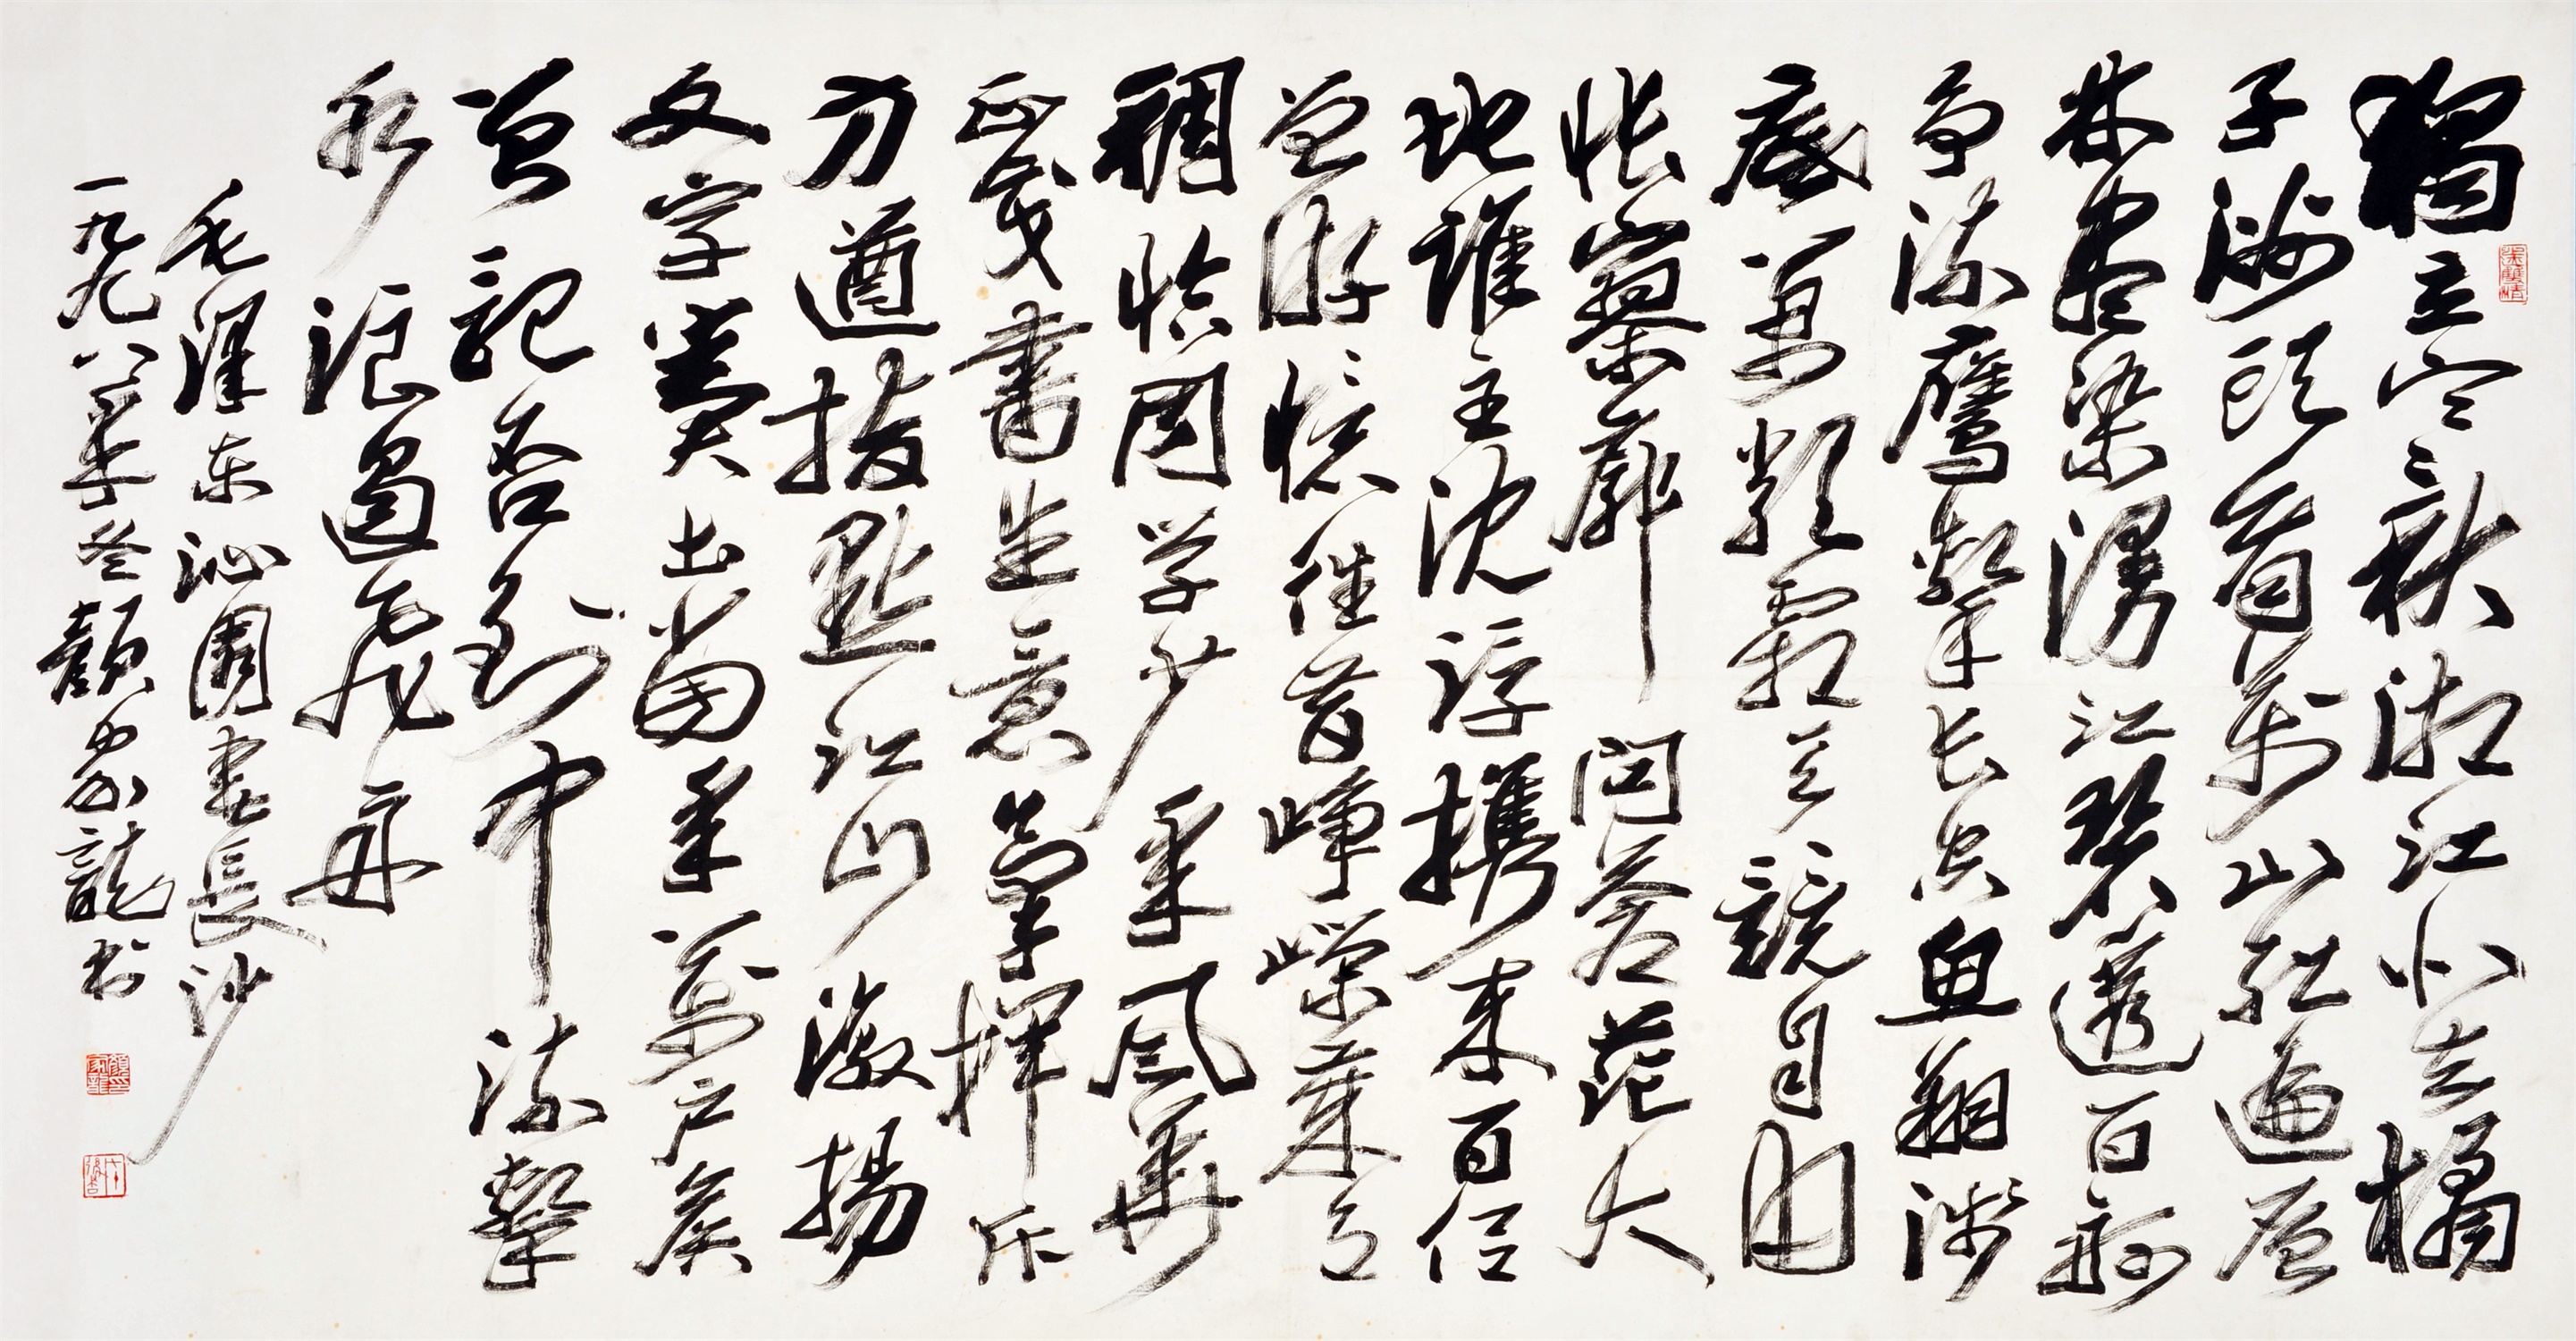 獨立寒秋湘江北去橘
子洲头看萬山紅遍層
林盡染漫江碧透百舸
争流鷹擊长空魚翔浅
底萬類霜天競自由
悵寥廓問蒼茫大
地誰主沈浮携来百侣
曾游憶往昔崢嶸歲月
稠恰同学少年風華
正茂書生意氣揮斥
方遒指點江山激揚
文字糞土當年萬户侯
曾記否到中流擊
水浪遏飛舟
毛澤东沁園春長沙
一九九八年冬顏家龍书